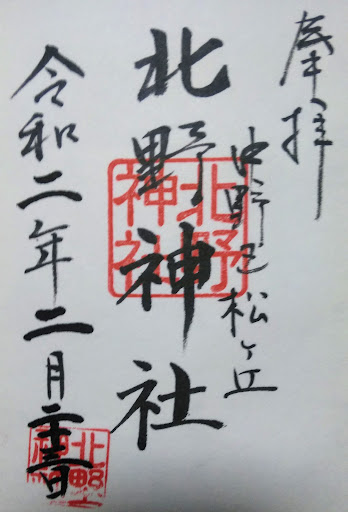 奉拝
中野区松ヶ丘
北野神社
北野
神社
令和二年二月二十三日
北野
神社